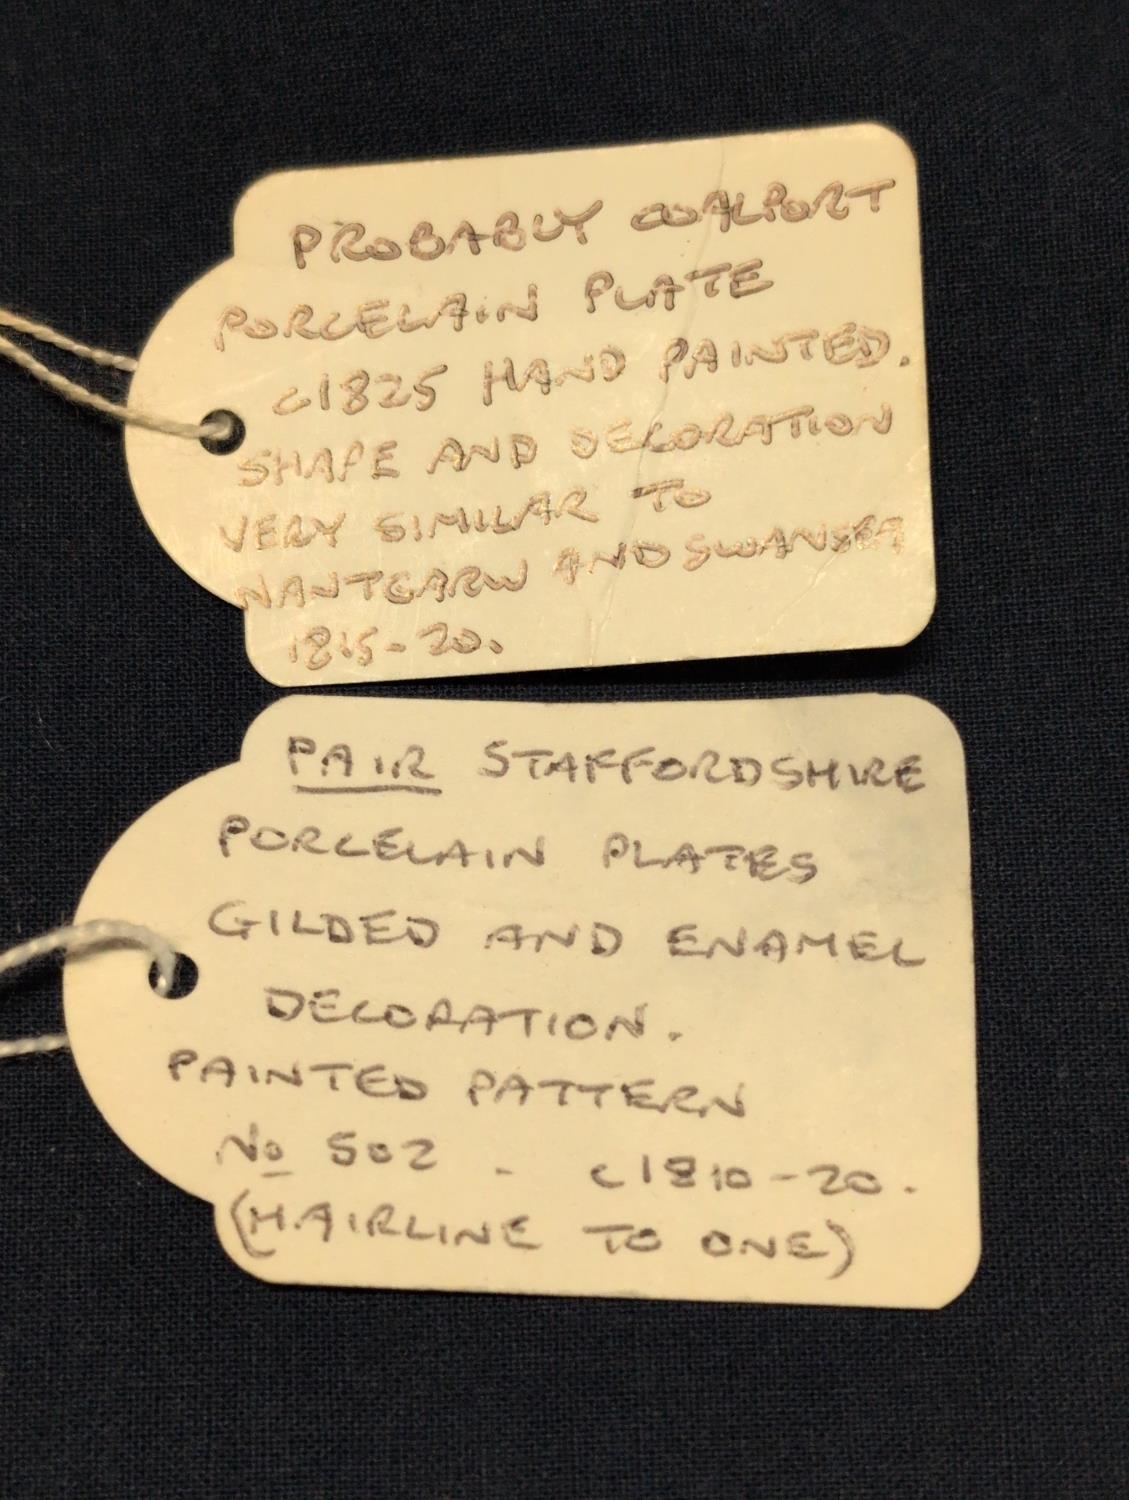 PROBABLY COALPORT
PORCELAIN PLATE
c1825 HAND PAINTED.
SHAPE AND DECORATION
VERY SIMILAR TO
NANTGARW AND SWANSEA
1815-20.
PAIR STAFFORDSHIRE
PORCELAIN PLATES
GILDED AND ENAMEL
DECORATION.
PAINTED PATTERN
No 502 - c1810-20.
(HAIRLINE TO ONE)